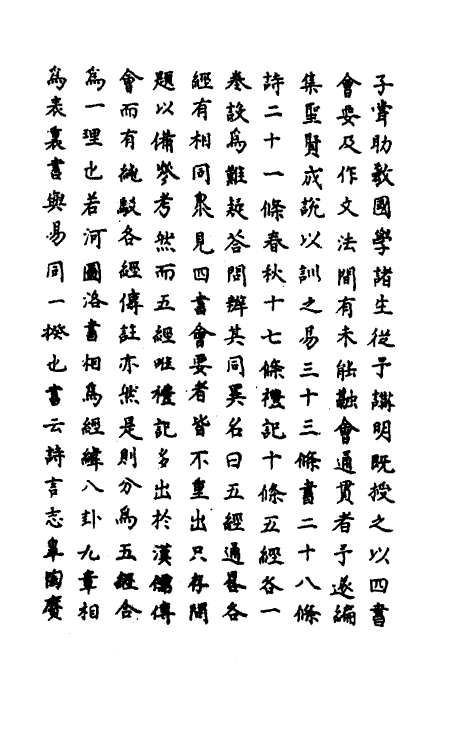 予嘗助教國學諸生從予講明既授之以四書
會要及作文法間有未能融會通貫者予遂編
集聖賢成說以訓之易三十三條書二十八條
詩二十一條春秋十七條禮記十條五經各一
卷設爲難疑荅問辨其同異名曰五經通畧各
經有相同衆見四書會要者皆不重出只存問
題以備參考然而五經唯禮記多出於漢儒傳
會而有純駁各經傳註亦然是則分爲五經合
爲一理也若河圖洛書相爲經緯八卦九章相
爲表裏書與易同一揆也書云詩言志臯陶賡